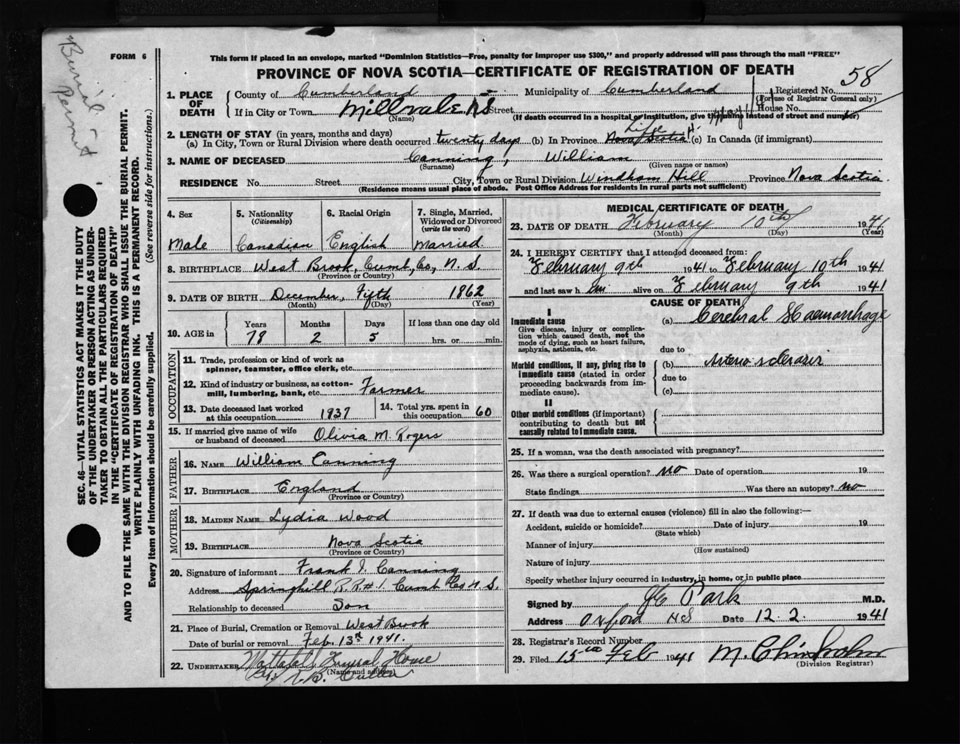 Burial
Permit
FORM 6
This form if placed in an envelope, marked "Dominion Statistics—Free, penalty for improper use $300," and properly addressed will pass through the mail "FREE"
PROVINCE OF NOVA SCOTIA—CERTIFICATE OF REGISTRATION OF DEATH
58
1. PLACE OF DEATH
County of Cumberland Municipality of Cumberland Registered No.
(For use of Registrar General only)
If in City or Town Millvale N.S. Street House No.
(Name) (If death occurred in a hospital or institution, give the name instead of street and number)
2. LENGTH OF STAY (in years, months and days) Life
(a) In City, Town or Rural Division where death occurred twenty days (b) In Province Nova Scotia (c) In Canada (if immigrant)
3. NAME OF DECEASED Canning, William
(Surname) (Given name or names)
RESIDENCE No. Street City, Town or Rural Division Windham Hill Province Nova Scotia
(Residence means usual place of abode. Post Office Address for residents in rural parts not sufficient)
4. Sex Male
5. Nationality (Citizenship) Canadian
6. Racial Origin English
7. Single, Married, Widowed or Divorced (write the word) Married
8. BIRTHPLACE West Brook, Cumb, Co, N. S.
(Province or Country)
9. DATE OF BIRTH December, Fifth 1862
(Month) (Day) (Year)
10. AGE in Years Months Days If less than one day old
78 2 5 hrs. or min.
OCCUPATION
11. Trade, profession or kind of work as spinner, teamster, office clerk, etc.
12. Kind of industry or business, as cotton-mill, lumbering, bank, etc. Farmer
13. Date deceased last worked at this occupation 1937
14. Total yrs. spent in this occupation 60
15. If married give name of wife or husband of deceased Olivia M. Rogers
FATHER
16. NAME William Canning
17. BIRTHPLACE England
(Province or Country)
MOTHER
18. MAIDEN NAME Lydia Wood
19. BIRTHPLACE Nova Scotia
(Province or Country)
20. Signature of informant Frank I. Canning
Address Springhill R.R.#1 Cumb Co N.S.
Relationship to deceased Son
21. Place of Burial, Cremation or Removal West Brook
Date of burial or removal Feb. 13th 1941.
22. UNDERTAKER Funeral Home
(Name and address)
MEDICAL CERTIFICATE OF DEATH
23. DATE OF DEATH February 10th 1941
(Month) (Day) (Year)
24. I HEREBY CERTIFY that I attended deceased from:
February 9th 1941 to February 10th 1941
and last saw h im alive on February 9th 1941
CAUSE OF DEATH
I
Immediate cause
Give disease, injury or complication which caused death, not the mode of dying, such as heart failure, asphyxia, asthenia, etc.
(a) Cerebral Haemorrhage
due to
Morbid conditions, if any, giving rise to immediate cause (stated in order proceeding backwards from immediate cause)
(b) Arterio sclerosis
due to
(c)
II
Other morbid conditions (if important) contributing to death but not causally related to immediate cause.
25. If a woman, was the death associated with pregnancy?
26. Was there a surgical operation? No Date of operation 19
State findings Was there an autopsy? No
27. If death was due to external causes (violence) fill in also the following:—
Accident, suicide or homicide? Date of injury 19
(State which)
Manner of injury
(How sustained)
Nature of injury
Specify whether injury occurred in industry, in home, or in public place
Signed by Park M.D.
Address Oxford NS Date 12.2. 1941
28. Registrar's Record Number
29. Filed 15th Feb 1941
(Division Registrar)
SEC. 46—VITAL STATISTICS ACT MAKES IT THE DUTY
OF THE UNDERTAKER OR PERSON ACTING AS UNDER-
TAKER TO OBTAIN ALL THE PARTICULARS REQUIRED
IN THE "CERTIFICATE OF REGISTRATION OF DEATH"
AND TO FILE THE SAME WITH THE DIVISION REGISTRAR WHO SHALL ISSUE THE BURIAL PERMIT.
WRITE PLAINLY WITH UNFADING INK. THIS IS A PERMANENT RECORD.
Every item of information should be carefully supplied. (See reverse side for instructions.)